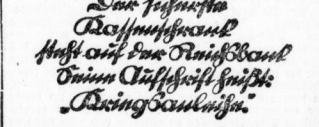 Der sicherste
Kassenschrank
steht auf der Reichsbank
Seine Aufschrift heißt:
„Kriegsanleihe“.